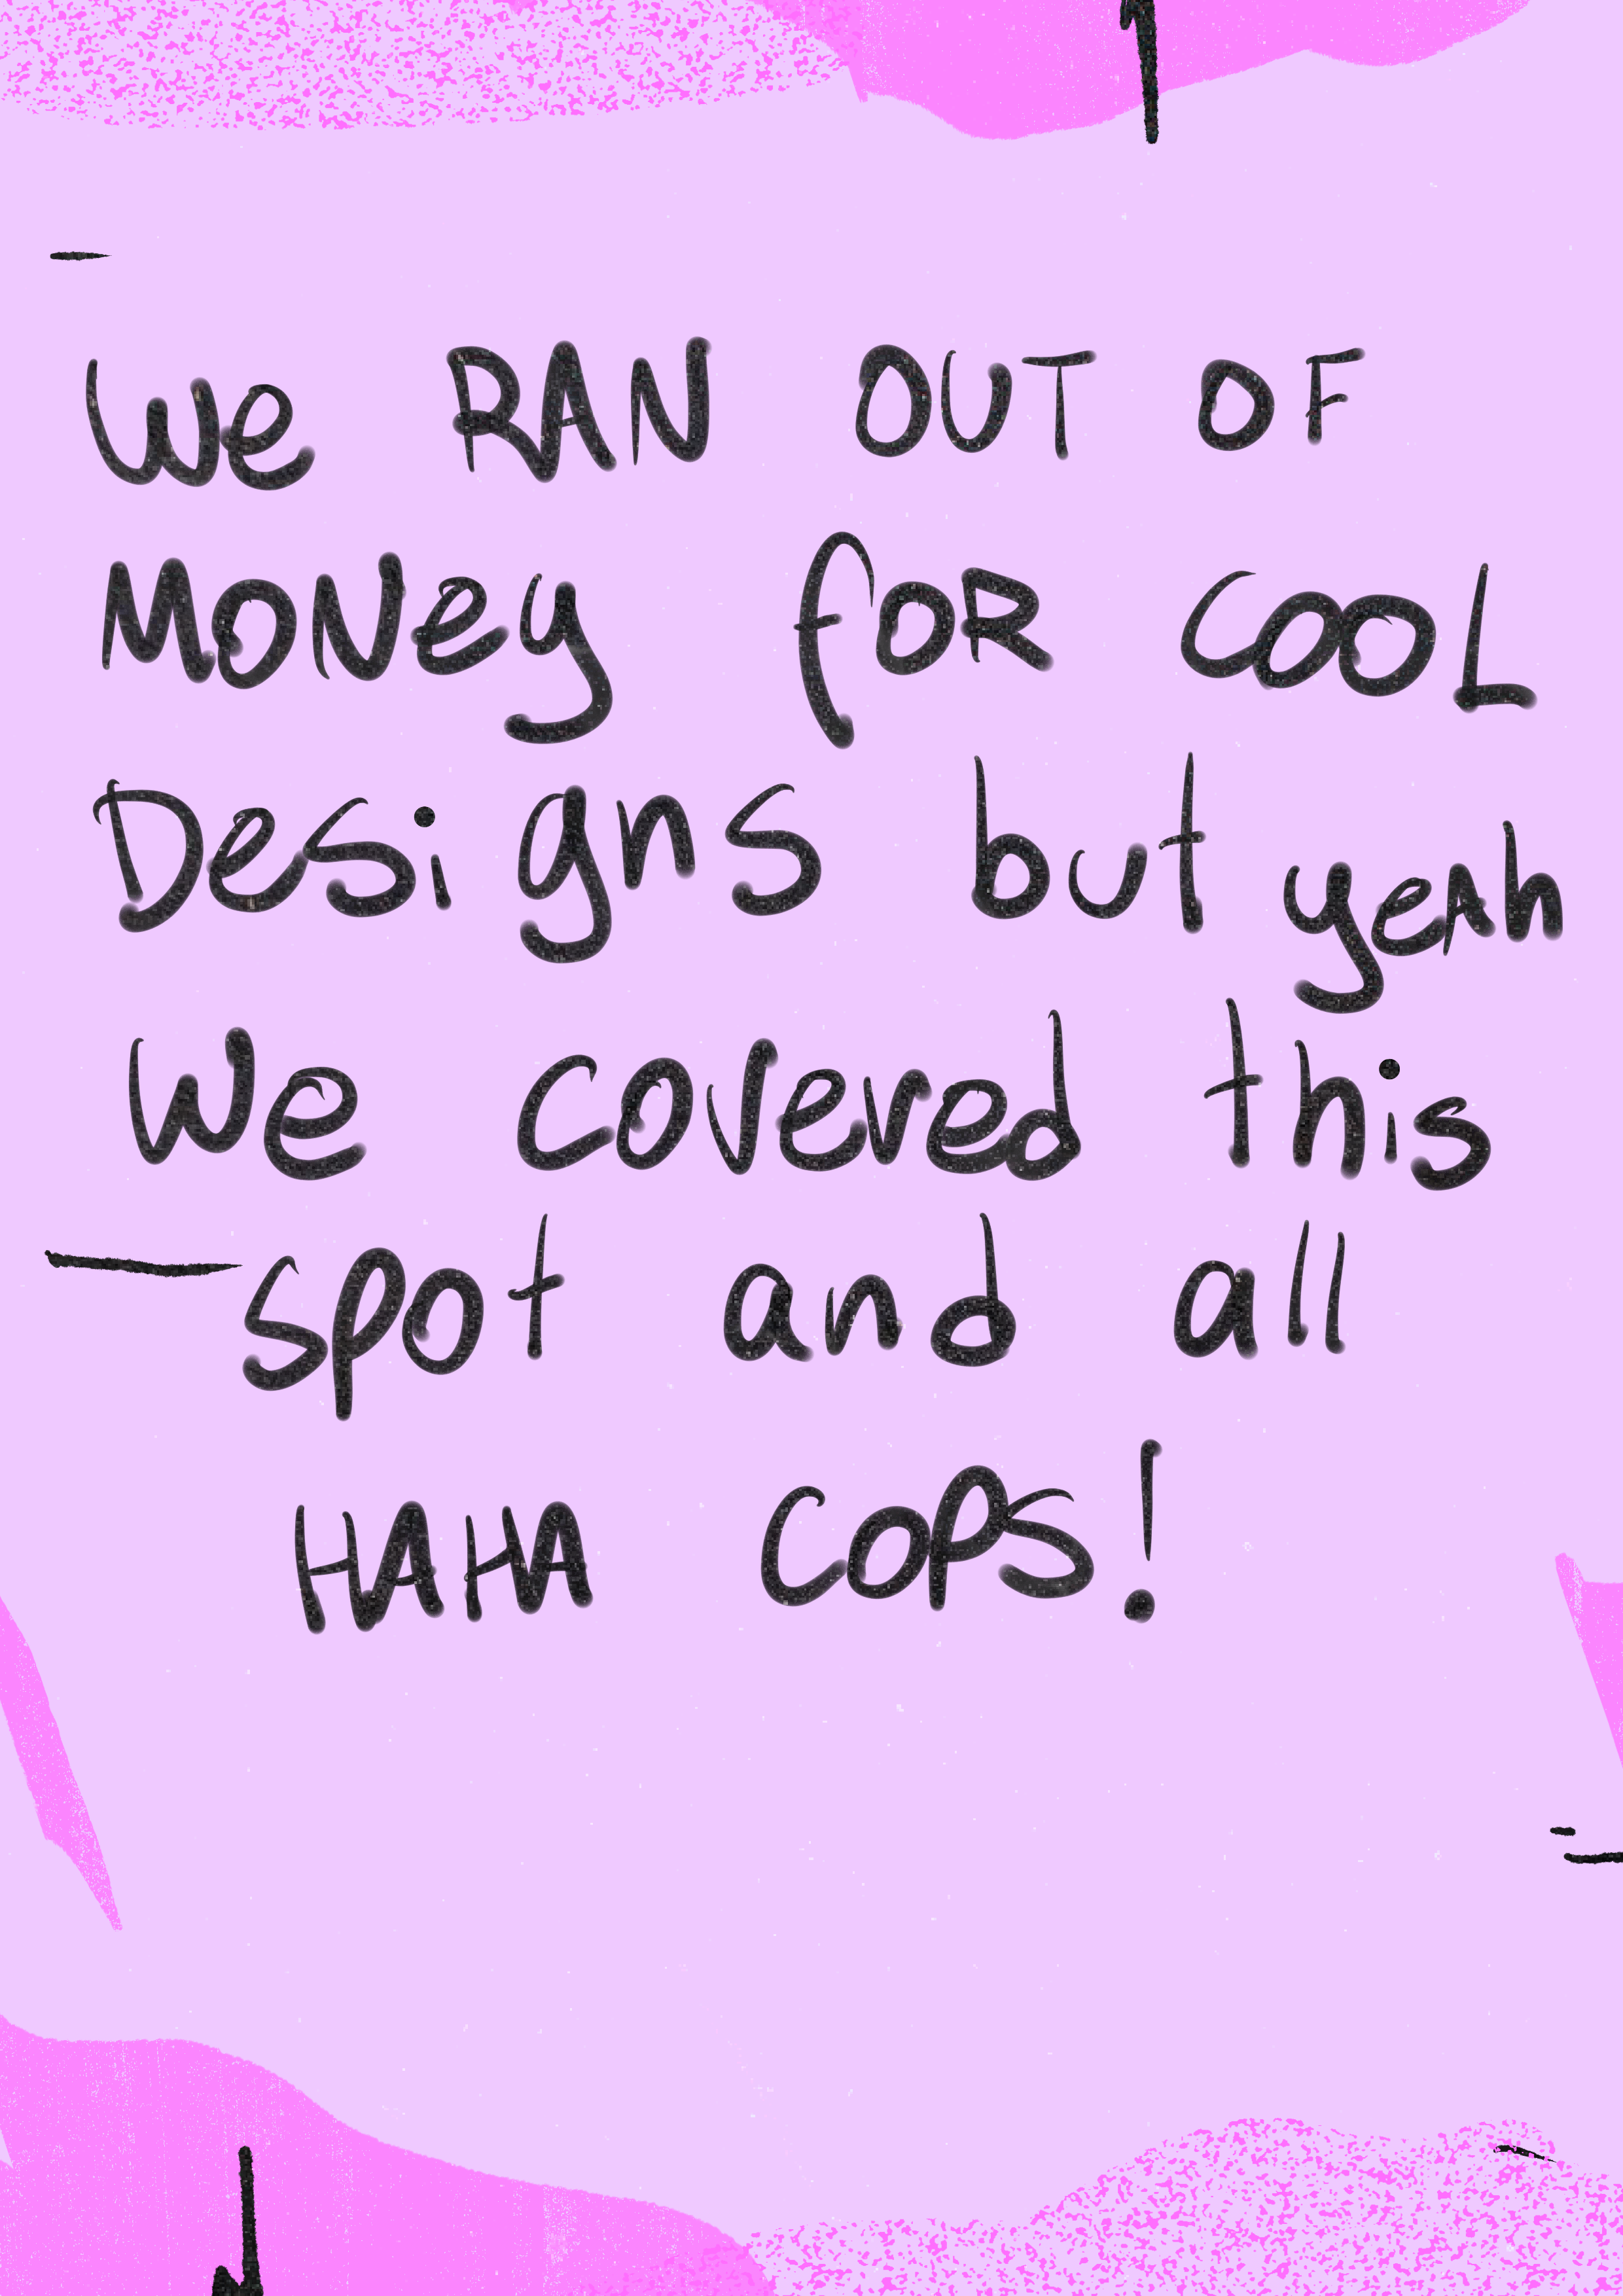 We RAN OUT OF
MONey fOR COOL
Designs but yeAh
We covered this
spot and all
HAHA COPS!